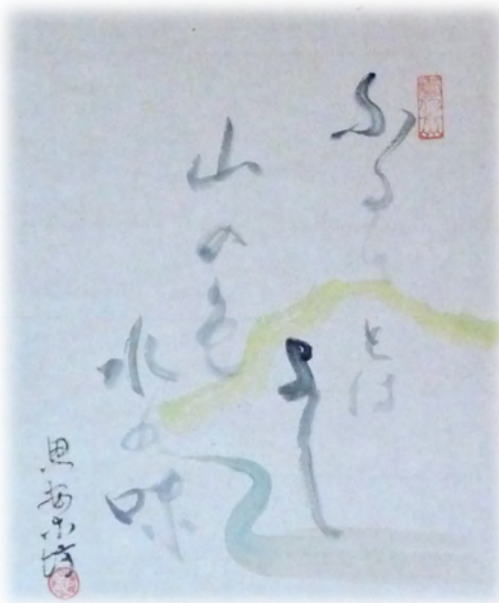 ふるさとは
山の色
水の味